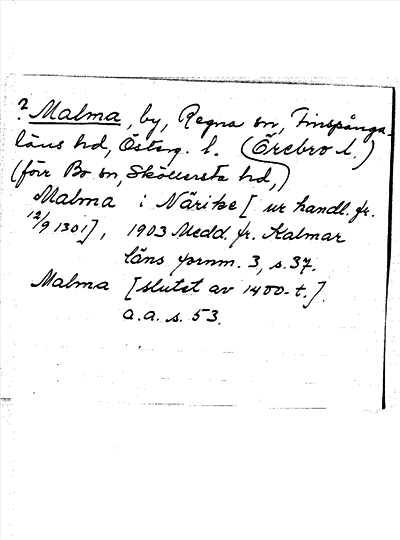 ? Malma, by, Regna sn, Finspånga-
läns hd, Österg. l. (Örebro l.)
(förr Bo sn, Sköllersta hd,)
Malma i Närike [ur handl. fr.
12/9 1301], 1903 Medd. fr. Kalmar
läns fornm. 3, s. 37.
Malma [slutet av 1400-t.].
a.a. s. 53.